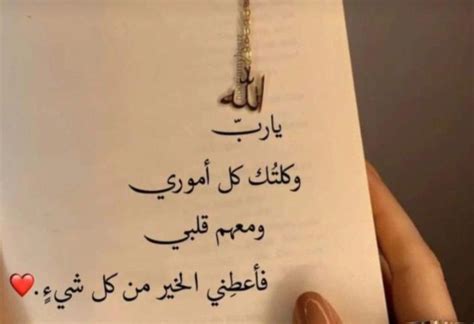 الله
يا ربّ
وكلتُك كل أموري
ومعهم قلبي
فأعطِني الخير من كل شيءٍ.❤️